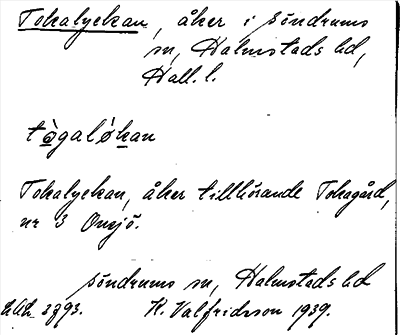 Tokalyckan, åker i söndrums
sn, Halmstads hd,
Hall. l.
tògaløkan
Tokalyckan, åker tillhörande Tokagård,
nr 3 Onsjö.
söndrums sn, Halmstads hd
3793. K. Valfridsson 1939.